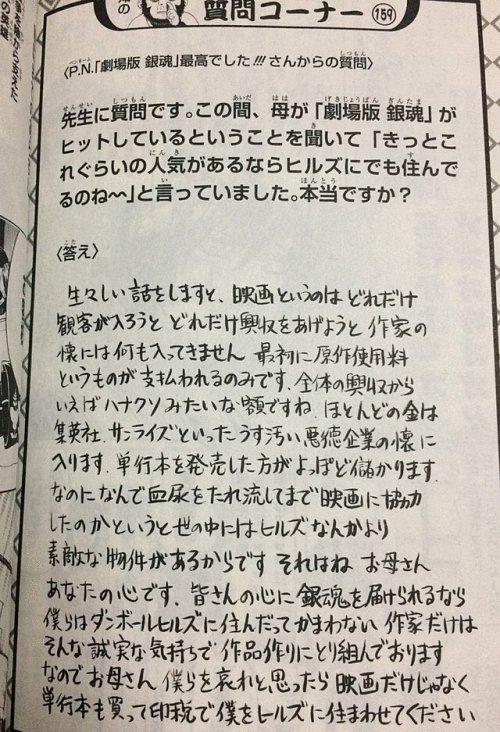 質問コーナー
159
〈P.N.「劇場版 銀魂」最高でした!!!さんからの質問〉
先生に質問です。この間、母が「劇場版 銀魂」が
ヒットしているということを聞いて「きっとこ
れぐらいの人気があるならヒルズにでも住んで
るのね〜〜」と言っていました。本当ですか？
〈答え〉
生々しい話をしますと、映画というのは どれだけ
観客が入ろうと どれだけ興収をあげようと 作家の
懐には何も入ってきません 最初に原作使用料
というものが支払われるのみです. 全体の興収から
いえばハナクソみたいな額ですね. ほとんどの金は
集英社. サンライズといったうす汚い悪徳企業の懐に
入ります. 単行本を発売した方がよっぽど儲かります.
なのになんで血尿をたれ流してまで映画に協力
したのかというと世の中にはヒルズなんかより
素敵な物件があるからです それはね お母さん
あなたの心です. 皆さんの心に 銀魂を届けられるなら
僕らはダンボールヒルズに住んだってかまわない 作家だけは
そんな誠実な気持ちで 作品作りにとり組んでおります
なのでお母さん 僕らを哀れと思ったら 映画だけじゃなく
単行本も買って印税で僕をヒルズに住まわせてください